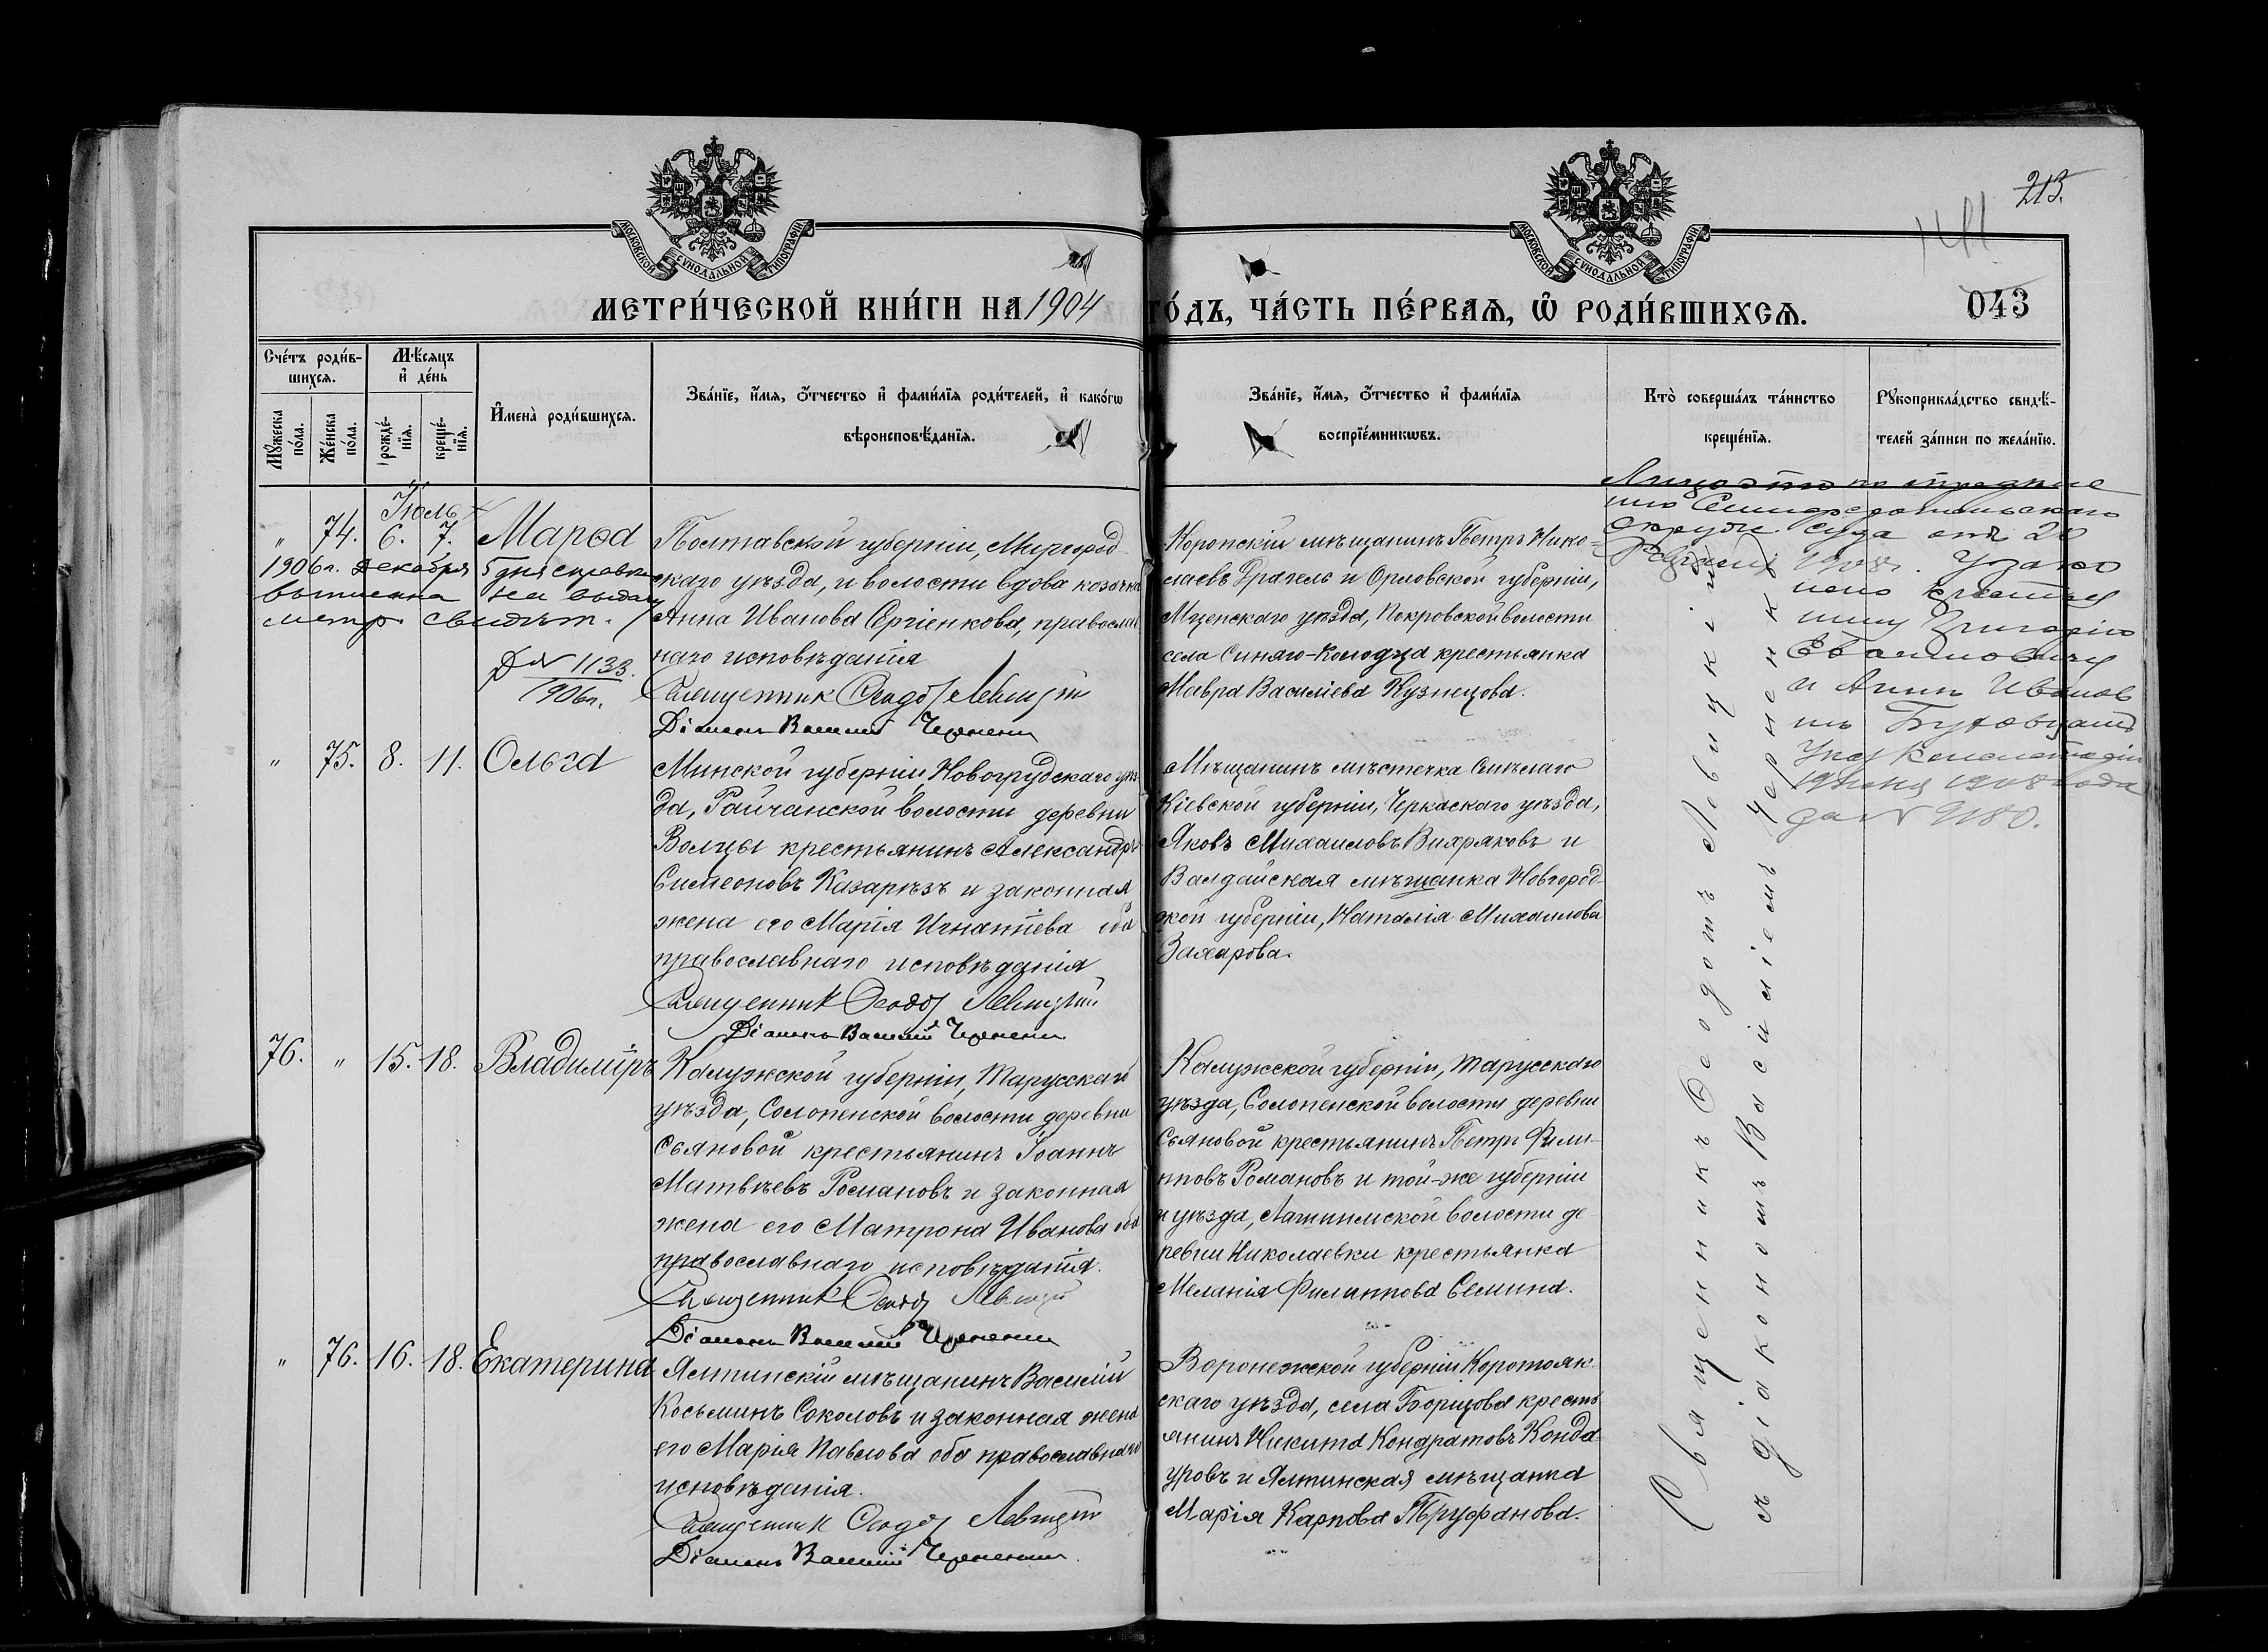 213.
МОСКОВСКОЙ СУНОДАЛЬНОЙ ТИПОГРАФІИ
МОСКОВСКОЙ СУНОДАЛЬНОЙ ТИПОГРАФІИ
МЕТРИ́ЧЕСКОЙ КНИ́ГИ НА 1904 ГО́ДЪ, ЧА́СТЬ ПЕ́РВАѦ, Ѡ҆ РОДИ́ВШИХСѦ.
043
Сче́тъ роди́в-
шихсѧ.
Мꙋ́жеска по́ла.
Же́нска по́ла.
Мѣ́сѧцъ
и҆ де́нь
рожде́-
нїѧ.
креще́-
нїѧ.
И҆мена̀ роди́вшихсѧ.
Зва́нїе, и҆́мѧ, ѻ҆́тчество и҆ фами́лїѧ роди́телей, и҆ како́гѡ
вѣроисповѣ́данїѧ.
Зва́нїе, и҆́мѧ, ѻ҆́тчество и҆ фами́лїѧ
воспрїе́мникѡвъ.
Кто̀ соверша́лъ та́инство
креще́нїѧ.
Рꙋкоприкла́дство свидѣ́-
телей за́писи по жела́нїю.
Іюль
" 74. 6. 7. Марѳа
1906 г. Декабря 5 дня справка
выписана на выдачу
метр. свидѣт.
№ 1133.
1906 г.
Полтавской губерніи, Миргород-
скаго уѣзда, и волости вдова козачка
Анна Иванова Сергіенкова, православ
наго исповѣданія
Священник Ѳеодот Левицкій
Діаконъ Василій Черненкій
Коропскій мѣщанинъ Петръ Нико-
лаевъ Драгель и Орловской губерніи,
Мценскаго уѣзда, Покровской волости
села Синяго-Колодца крестьянка
Мавра Василіева Кузнецова.
Симферопольскаго
Окружн. суда отъ 20
1908 г. Узако
нена крестья
нину Григорію
и Аннѣ Иванов
нѣ
1908 года
за №
" 75. 8. 11. Ольга
Минской губерніи, Новогрудскаго уѣз
да, Райчанской волости деревни
Волцы крестьянинъ Александръ
Симеоновъ Казарѣзъ и законная
жена его Марія Игнатіева оба
православнаго исповѣданія
Священник Ѳеодот Левицкій
Діаконъ Василій Черненкій
Мѣщанинъ мѣстечка Смѣлаго
Кіевской губерніи, Черкаскаго уѣзда,
Яковъ Михаиловъ Вихряковъ и
Валдайская мѣщанка Новгород-
ской губерніи, Наталія Михаилова
Захарова.
76. " 15. 18. Владиміръ
Калужской губерніи, Тарусскаго
уѣзда, Солопенской волости деревни
Сьяновой крестьянинъ Іоаннъ
Матвѣевъ Романовъ и законная
жена его Матрона Иванова оба
православнаго исповѣданія.
Священник Ѳеодот Левицкій
Діаконъ Василій Черненкій
Калужской губерніи, Тарусскаго
уѣзда, Солопенской волости деревни
Сьяновой крестьянинъ Петръ Фили-
пповъ Романовъ и той-же губерніи
и уѣзда, волости де
ревни Николаевки крестьянка
Меланія Филиппова Семина.
" 76. 16. 18. Екатерина
Ялтинскій мѣщанинъ Василій
Косьминъ Соколовъ и законная жена
его Марія Павлова оба православнаго
исповѣданія.
Священник Ѳеодот Левицкій
Діаконъ Василій Черненкій
Воронежской губерніи Коротояк-
скаго уѣзда, села Борщова кресть
янинъ Никита Кондратовъ Конда
уровъ и Ялтинская мѣщанка
Марія Карпова Труфанова.
Священникъ Ѳеодотъ Левицкій
съ діакономъ Василіемъ Черненкимъ